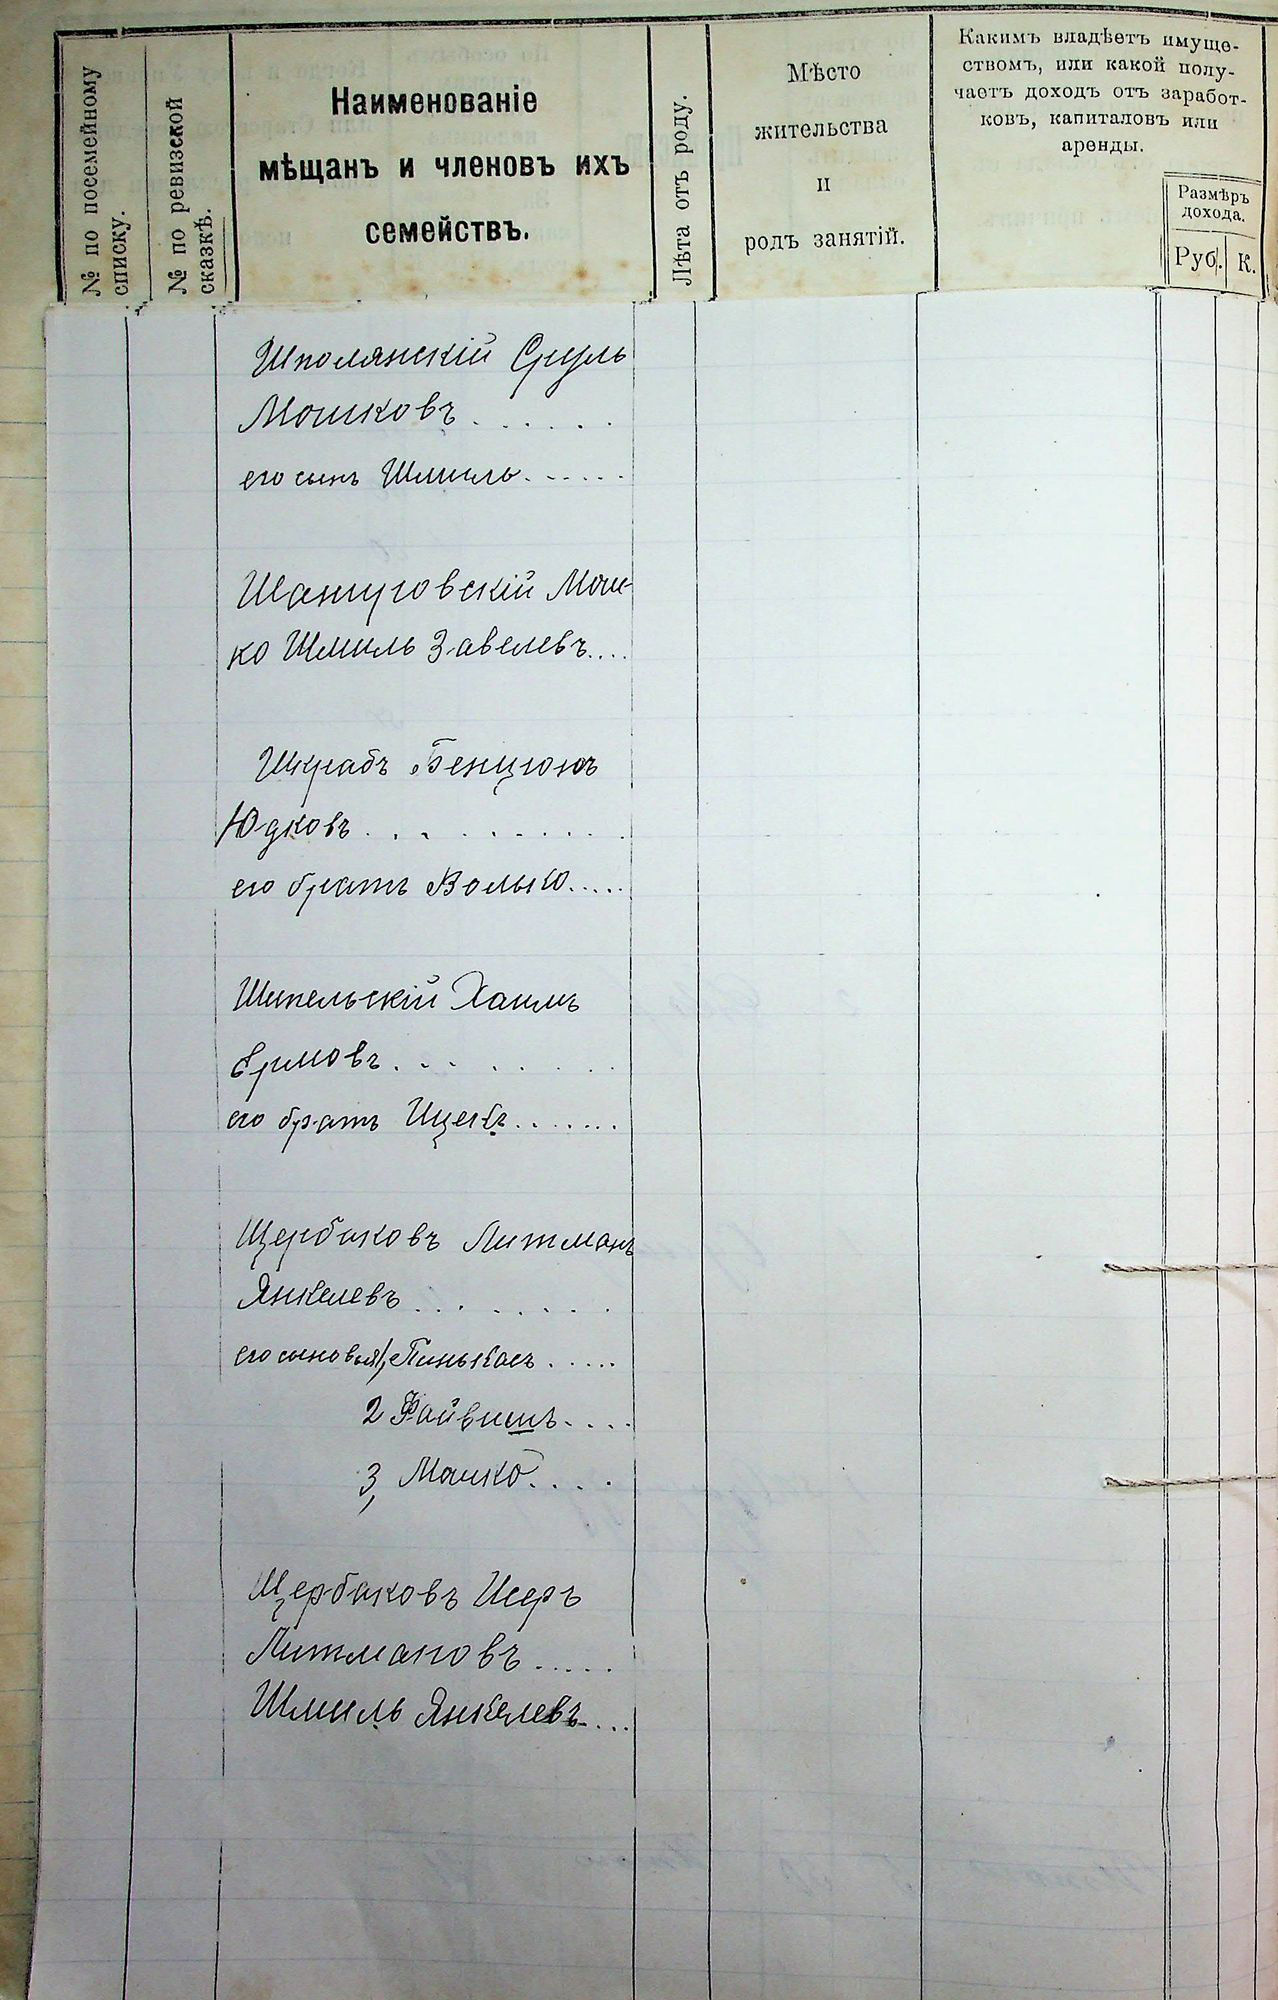 № по посемейному списку.
№ по ревизской сказкѣ.
Наименованіе
мѣщанъ и членовъ ихъ
семействъ.
Лѣта отъ роду.
Мѣсто
жительства
и
родъ занятій.
Какимъ владѣетъ имуще-
ствомъ, или какой полу-
чаетъ доходъ отъ заработ-
ковъ, капиталовъ или
аренды.
Размѣръ
дохода.
Руб. К.
Шполянскій Сруль
Мошковъ . . . . . .
его сынъ Шмиль . . . . . .
Шантуровскій Мош-
ко Шмиль Завелевъ . . . .
Шкрабъ Бенціонъ
Юдковъ . . . . . . . . .
его братъ Волько . . . . .
Шипельскій Хаимъ
Ермовъ . . . . . . .
его братъ Ицекъ . . . . . . .
Щербаковъ Литманъ
Янкелевъ . . . . . . . .
его сыновья 1, Пинькасъ . . . . .
2 Файвишъ . . . .
3, Мошко . . . .
Щербаковъ Исеръ
Литмановъ . . . . .
Шмиль Янкелевъ . . .